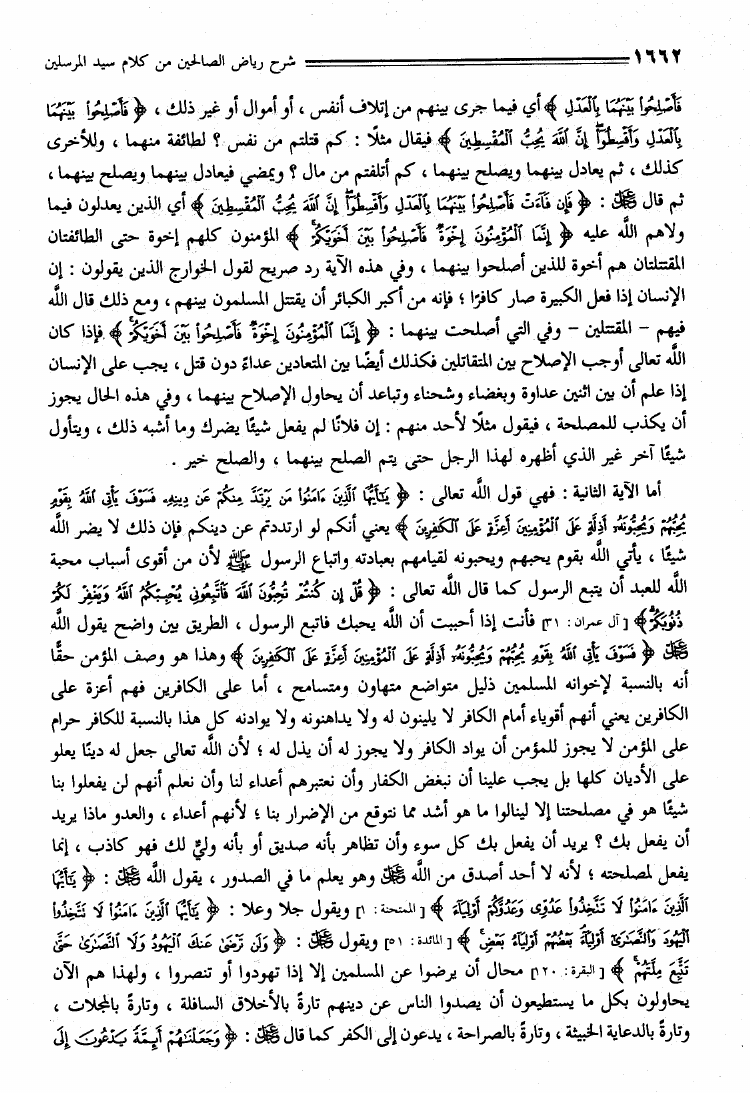 ١٦٦٢ شرح رياض الصالحين من كلام سيد المرسلين
فَأَصْلِحُوا بَيْنَهُمَا بِالْعَدْلِ ﴾ أي فيما جرى بينهم من إتلاف أنفس ، أو أموال أو غير ذلك ، ﴿ فَأَصْلِحُوا بَيْنَهُمَا
بِالْعَدْلِ وَأَقْسِطُوا إِنَّ اللَّهَ يُحِبُّ الْمُقْسِطِينَ ﴾ فيقال مثلًا : كم قتلتم من نفس ؟ لطائفة منهما ، وللأخرى
كذلك ، ثم يعادل بينهما ويصلح بينهما ، كم أتلفتم من مال ؟ ويمضي فيعادل بينهما ويصلح بينهما ،
ثم قال ﷻ : ﴿ فَإِن فَاءَتْ فَأَصْلِحُوا بَيْنَهُمَا بِالْعَدْلِ وَأَقْسِطُوا إِنَّ اللَّهَ يُحِبُّ الْمُقْسِطِينَ ﴾ أي الذين يعدلون فيما
ولاهم اللَّه عليه ﴿ إِنَّمَا الْمُؤْمِنُونَ إِخْوَةٌ فَأَصْلِحُوا بَيْنَ أَخَوَيْكُمْ ﴾ المؤمنون كلهم إخوة حتى الطائفتان
المقتتلتان هم أخوة للذين أصلحوا بينهما ، وفي هذه الآية رد صريح لقول الخوارج الذين يقولون : إن
الإنسان إذا فعل الكبيرة صار كافرًا ؛ فإنه من أكبر الكبائر أن يقتتل المسلمون بينهم ، ومع ذلك قال اللَّه
فيهم – المقتتلين – وفي التي أصلحت بينهما : ﴿ إِنَّمَا الْمُؤْمِنُونَ إِخْوَةٌ فَأَصْلِحُوا بَيْنَ أَخَوَيْكُمْ ﴾ فإذا كان
اللَّه تعالى أوجب الإصلاح بين المتقاتلين فكذلك أيضًا بين المتعادين عداءً دون قتل ، يجب على الإنسان
إذا علم أن بين اثنين عداوة وبغضاء وشحناء وتباعد أن يحاول الإصلاح بينهما ، وفي هذه الحال يجوز
أن يكذب للمصلحة ، فيقول مثلًا لأحد منهم : إن فلانًا لم يفعل شيئًا يضرك وما أشبه ذلك ، ويتأول
شيئًا آخر غير الذي أظهره لهذا الرجل حتى يتم الصلح بينهما ، والصلح خير .
أما الآية الثانية : فهي قول اللَّه تعالى : ﴿ يَٰأَيُّهَا الَّذِينَ ءَامَنُوا مَن يَرْتَدَّ مِنكُمْ عَن دِينِهِ فَسَوْفَ يَأْتِي اللَّهُ بِقَوْمٍ
يُحِبُّهُمْ وَيُحِبُّونَهُ أَذِلَّةٍ عَلَى الْمُؤْمِنِينَ أَعِزَّةٍ عَلَى الْكَٰفِرِينَ ﴾ يعني أنكم لو ارتددتم عن دينكم فإن ذلك لا يضر اللَّه
شيئًا ، يأتي اللَّه بقوم يحبهم ويحبونه لقيامهم بعبادته واتباع الرسول ﷺ لأن من أقوى أسباب محبة
اللَّه للعبد أن يتبع الرسول كما قال اللَّه تعالى : ﴿ قُلْ إِن كُنتُمْ تُحِبُّونَ اللَّهَ فَاتَّبِعُونِي يُحْبِبْكُمُ اللَّهُ وَيَغْفِرْ لَكُمْ
ذُنُوبَكُمْ ﴾ [آل عمران : ٣١] فأنت إذا أحببت أن اللَّه يحبك فاتبع الرسول ، الطريق بين واضح يقول اللَّه
ﷻ ﴿ فَسَوْفَ يَأْتِي اللَّهُ بِقَوْمٍ يُحِبُّهُمْ وَيُحِبُّونَهُ أَذِلَّةٍ عَلَى الْمُؤْمِنِينَ أَعِزَّةٍ عَلَى الْكَٰفِرِينَ ﴾ وهذا هو وصف المؤمن حقًّا
أنه بالنسبة لإخوانه المسلمين ذليل متواضع متهاون ومتسامح ، أما على الكافرين فهم أعزة على
الكافرين يعني أنهم أقوياء أمام الكافر لا يلينون له ولا يداهنونه ولا يوادنه كل هذا بالنسبة للكافر حرام
على المؤمن لا يجوز للمؤمن أن يواد الكافر ولا يجوز له أن يذل له ؛ لأن اللَّه تعالى جعل له دينًا يعلو
على الأديان كلها بل يجب علينا أن نبغض الكفار وأن نعتبرهم أعداء لنا وأن نعلم أنهم لن يفعلوا بنا
شيئًا هو في مصلحتنا إلا لينالوا ما هو أشد مما نتوقع من الإضرار بنا ؛ لأنهم أعداء ، والعدو ماذا يريد
أن يفعل بك ؟ يريد أن يفعل بك كل سوء وأن تظاهر بأنه صديق أو بأنه وليٌّ لك فهو كاذب ، إنما
يفعل لمصلحته ؛ لأنه لا أحد أصدق من اللَّه ﷻ وهو يعلم ما في الصدور ، يقول اللَّه ﷻ : ﴿ يَٰأَيُّهَا
الَّذِينَ ءَامَنُوا لَا تَتَّخِذُوا عَدُوِّي وَعَدُوَّكُمْ أَوْلِيَاءَ ﴾ [الممتحنة : ١] ويقول جلا وعلا : ﴿ يَٰأَيُّهَا الَّذِينَ ءَامَنُوا لَا تَتَّخِذُوا
الْيَهُودَ وَالنَّصَٰرَىٰ أَوْلِيَاءَ بَعْضُهُمْ أَوْلِيَاءُ بَعْضٍ ﴾ [المائدة : ٥١] ويقول ﷻ : ﴿ وَلَن تَرْضَىٰ عَنكَ الْيَهُودُ وَلَا النَّصَٰرَىٰ حَتَّىٰ
تَتَّبِعَ مِلَّتَهُمْ ﴾ [البقرة : ١٢٠] محال أن يرضوا عن المسلمين إلا إذا تهودوا أو تنصروا ، ولهذا هم الآن
يحاولون بكل ما يستطيعون أن يصدوا الناس عن دينهم تارةً بالأخلاق السافلة ، وتارةً بالمجلات ،
وتارةً بالدعاية الخبيثة ، وتارةً بالصراحة ، يدعون إلى الكفر كما قال ﷻ : ﴿ وَجَعَلْنَٰهُمْ أَئِمَّةً يَدْعُونَ إِلَى